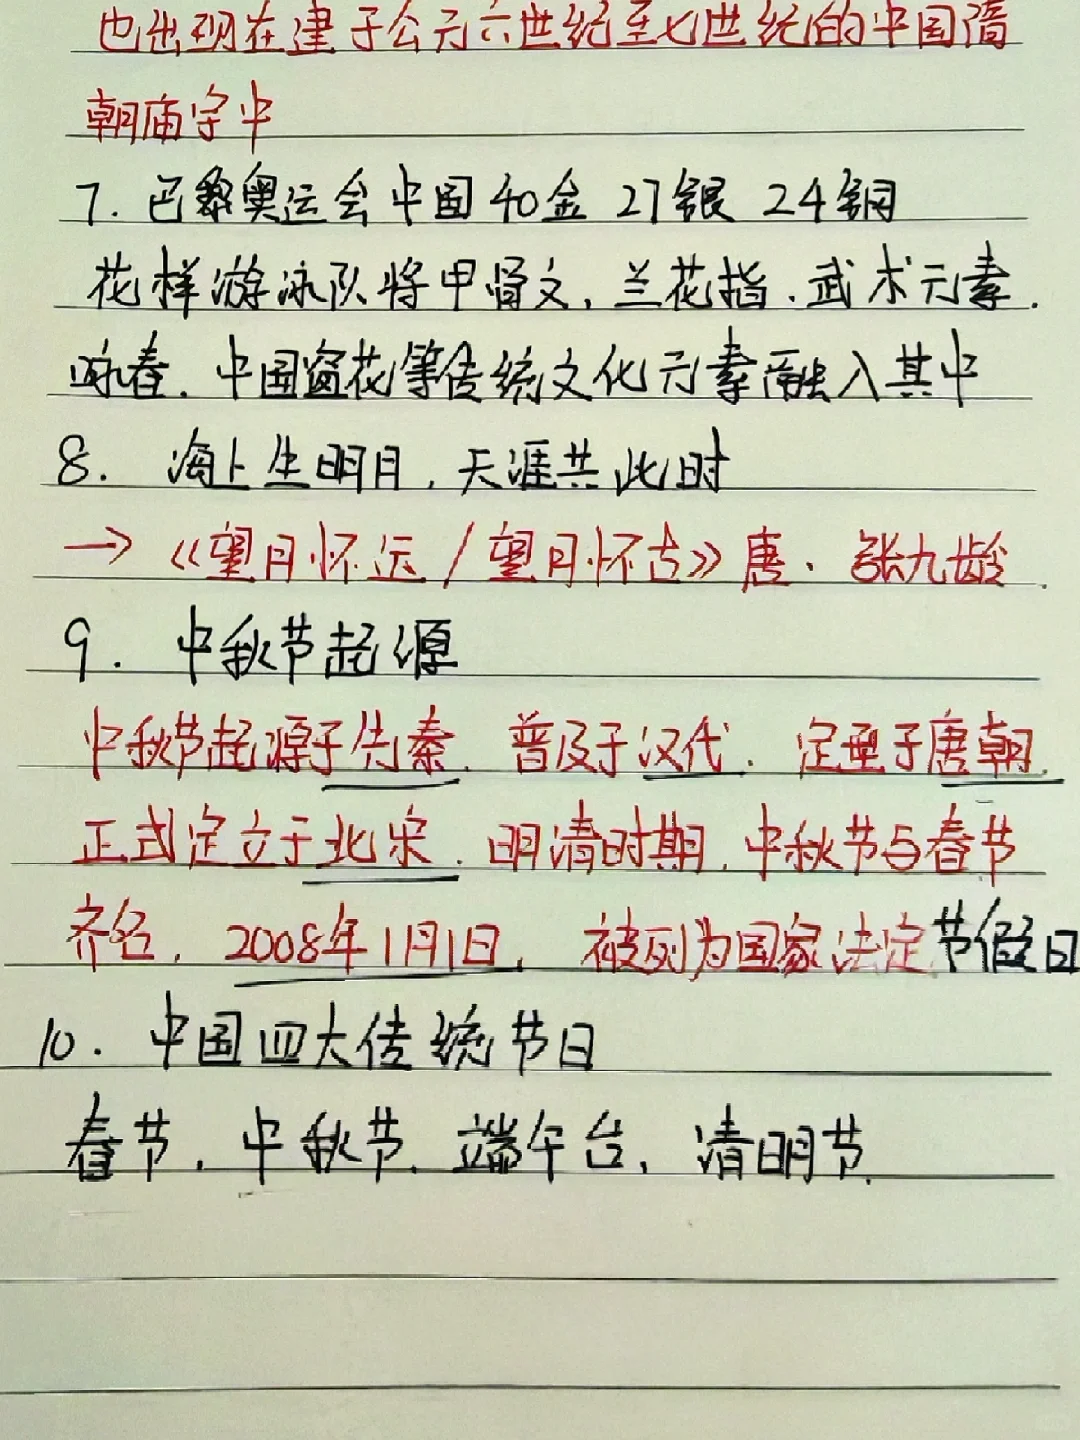 也出现在建于公元六世纪至七世纪的中国隋
朝庙宇中
7. 巴黎奥运会中国40金 27银 24铜
花样游泳队将甲骨文、兰花指、武术元素、
咏春、中国窗花等传统文化元素融入其中
8. 海上生明月，天涯共此时
→《望月怀远/望月怀古》唐·张九龄
9. 中秋节起源
中秋节起源于先秦，普及于汉代，定型于唐朝，
正式定立于北宋，明清时期，中秋节与春节
齐名，2008年1月1日，被列为国家法定节假日
10. 中国四大传统节日
春节、中秋节、端午台、清明节